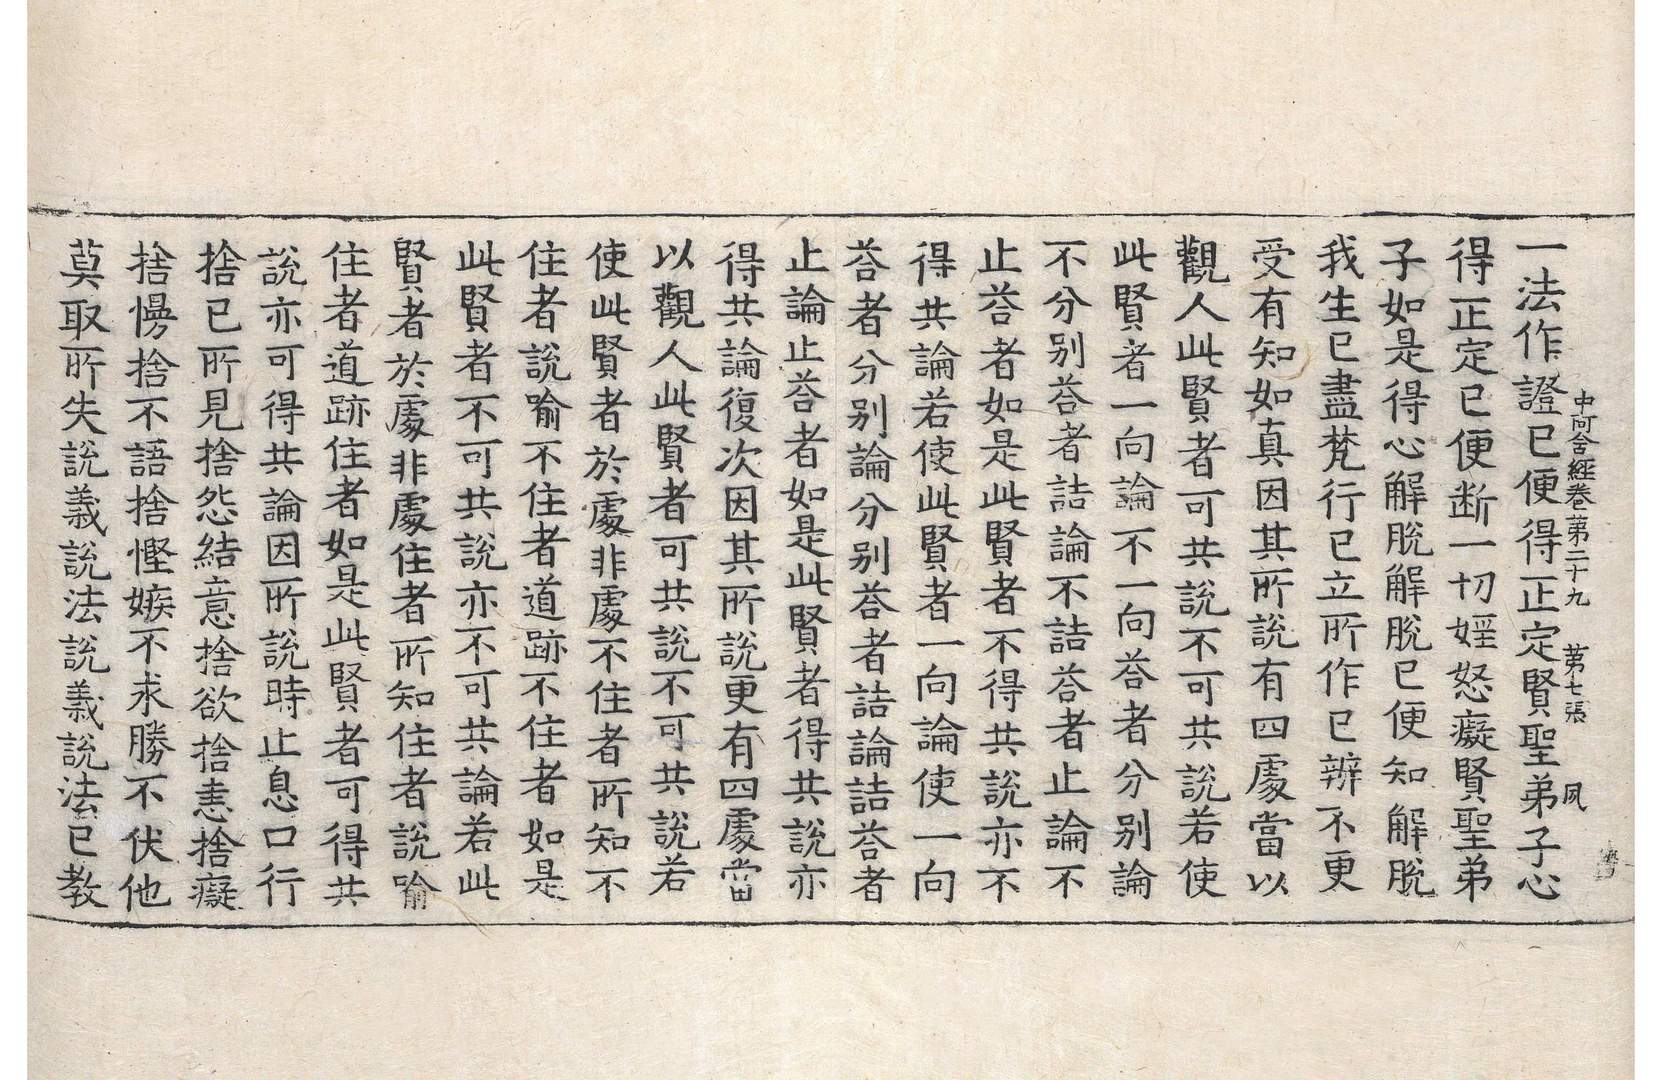 中阿含經卷第二十九　第七張　夙
一法作證已便得正定賢聖弟子心
得正定已便断一切婬怒癡賢聖弟
子如是得心解脫解脫已便知解脫
我生已盡梵行已立所作已辨不更
受有知如真因其所說有四處當以
觀人此賢者可共說不可共說若使
此賢者一向論不一向荅者分別論
不分別荅者詰論不詰荅者止論不
止荅者如是此賢者不得共說亦不
得共論若使此賢者一向論使一向
荅者分別論分別荅者詰論詰荅者
止論止荅者如是此賢者得共說亦
得共論復次因其所說更有四處當
以觀人此賢者可共說不可共說若
使此賢者於處非處不住者所知不
住者說喻不住者道跡不住者如是
此賢者不可共說亦不可共論若此
賢者於處非處住者所知住者說喻
住者道跡住者如是此賢者可得共
說亦可得共論因所說時止息口行
捨已所見捨怨結意捨欲捨恚捨癡
捨慢捨不語捨慳嫉不求勝不伏他
莫取所失說義說法說義說法已教